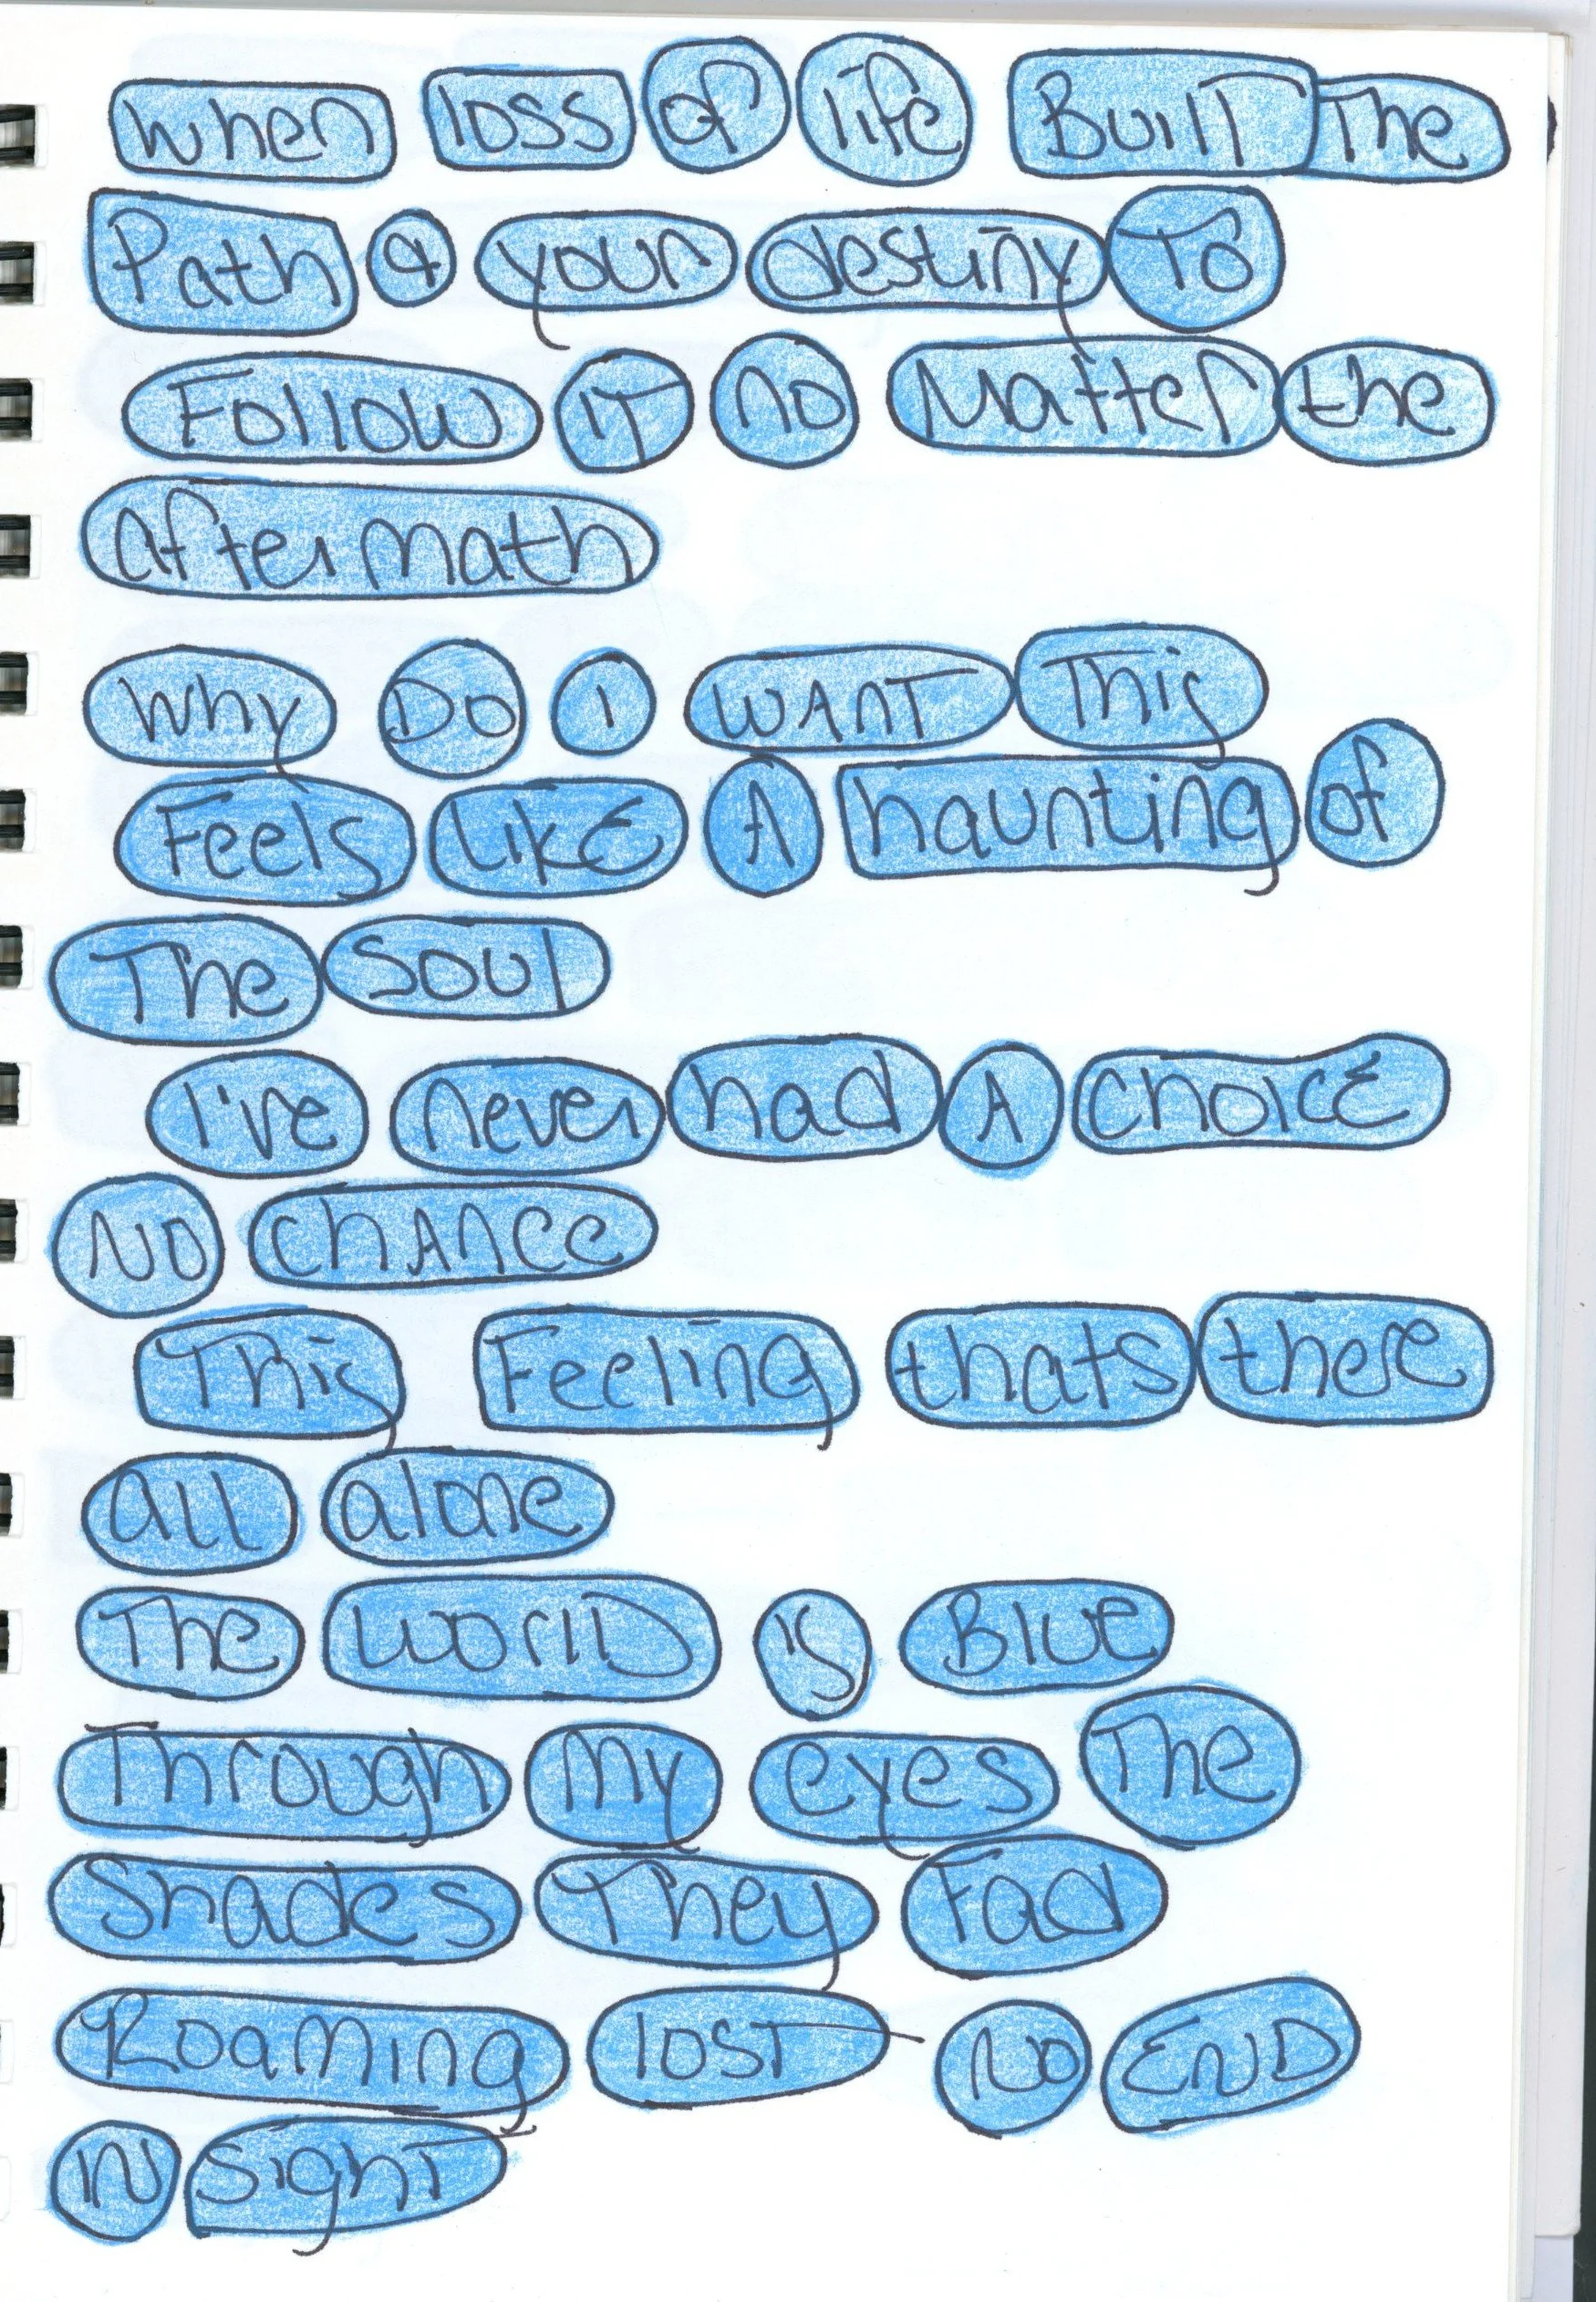 When loss of life Built The
Path & your destiny To
Follow iT no Matter the
aftermath
Why Do I WANT This
Feels Like A haunting of
The Soul
I've never had A choice
NO chANce
This Feeling thats there
all alone
The World is Blue
Through My eyes The
Shades They Fad
Roaming lost No END
IN Sight